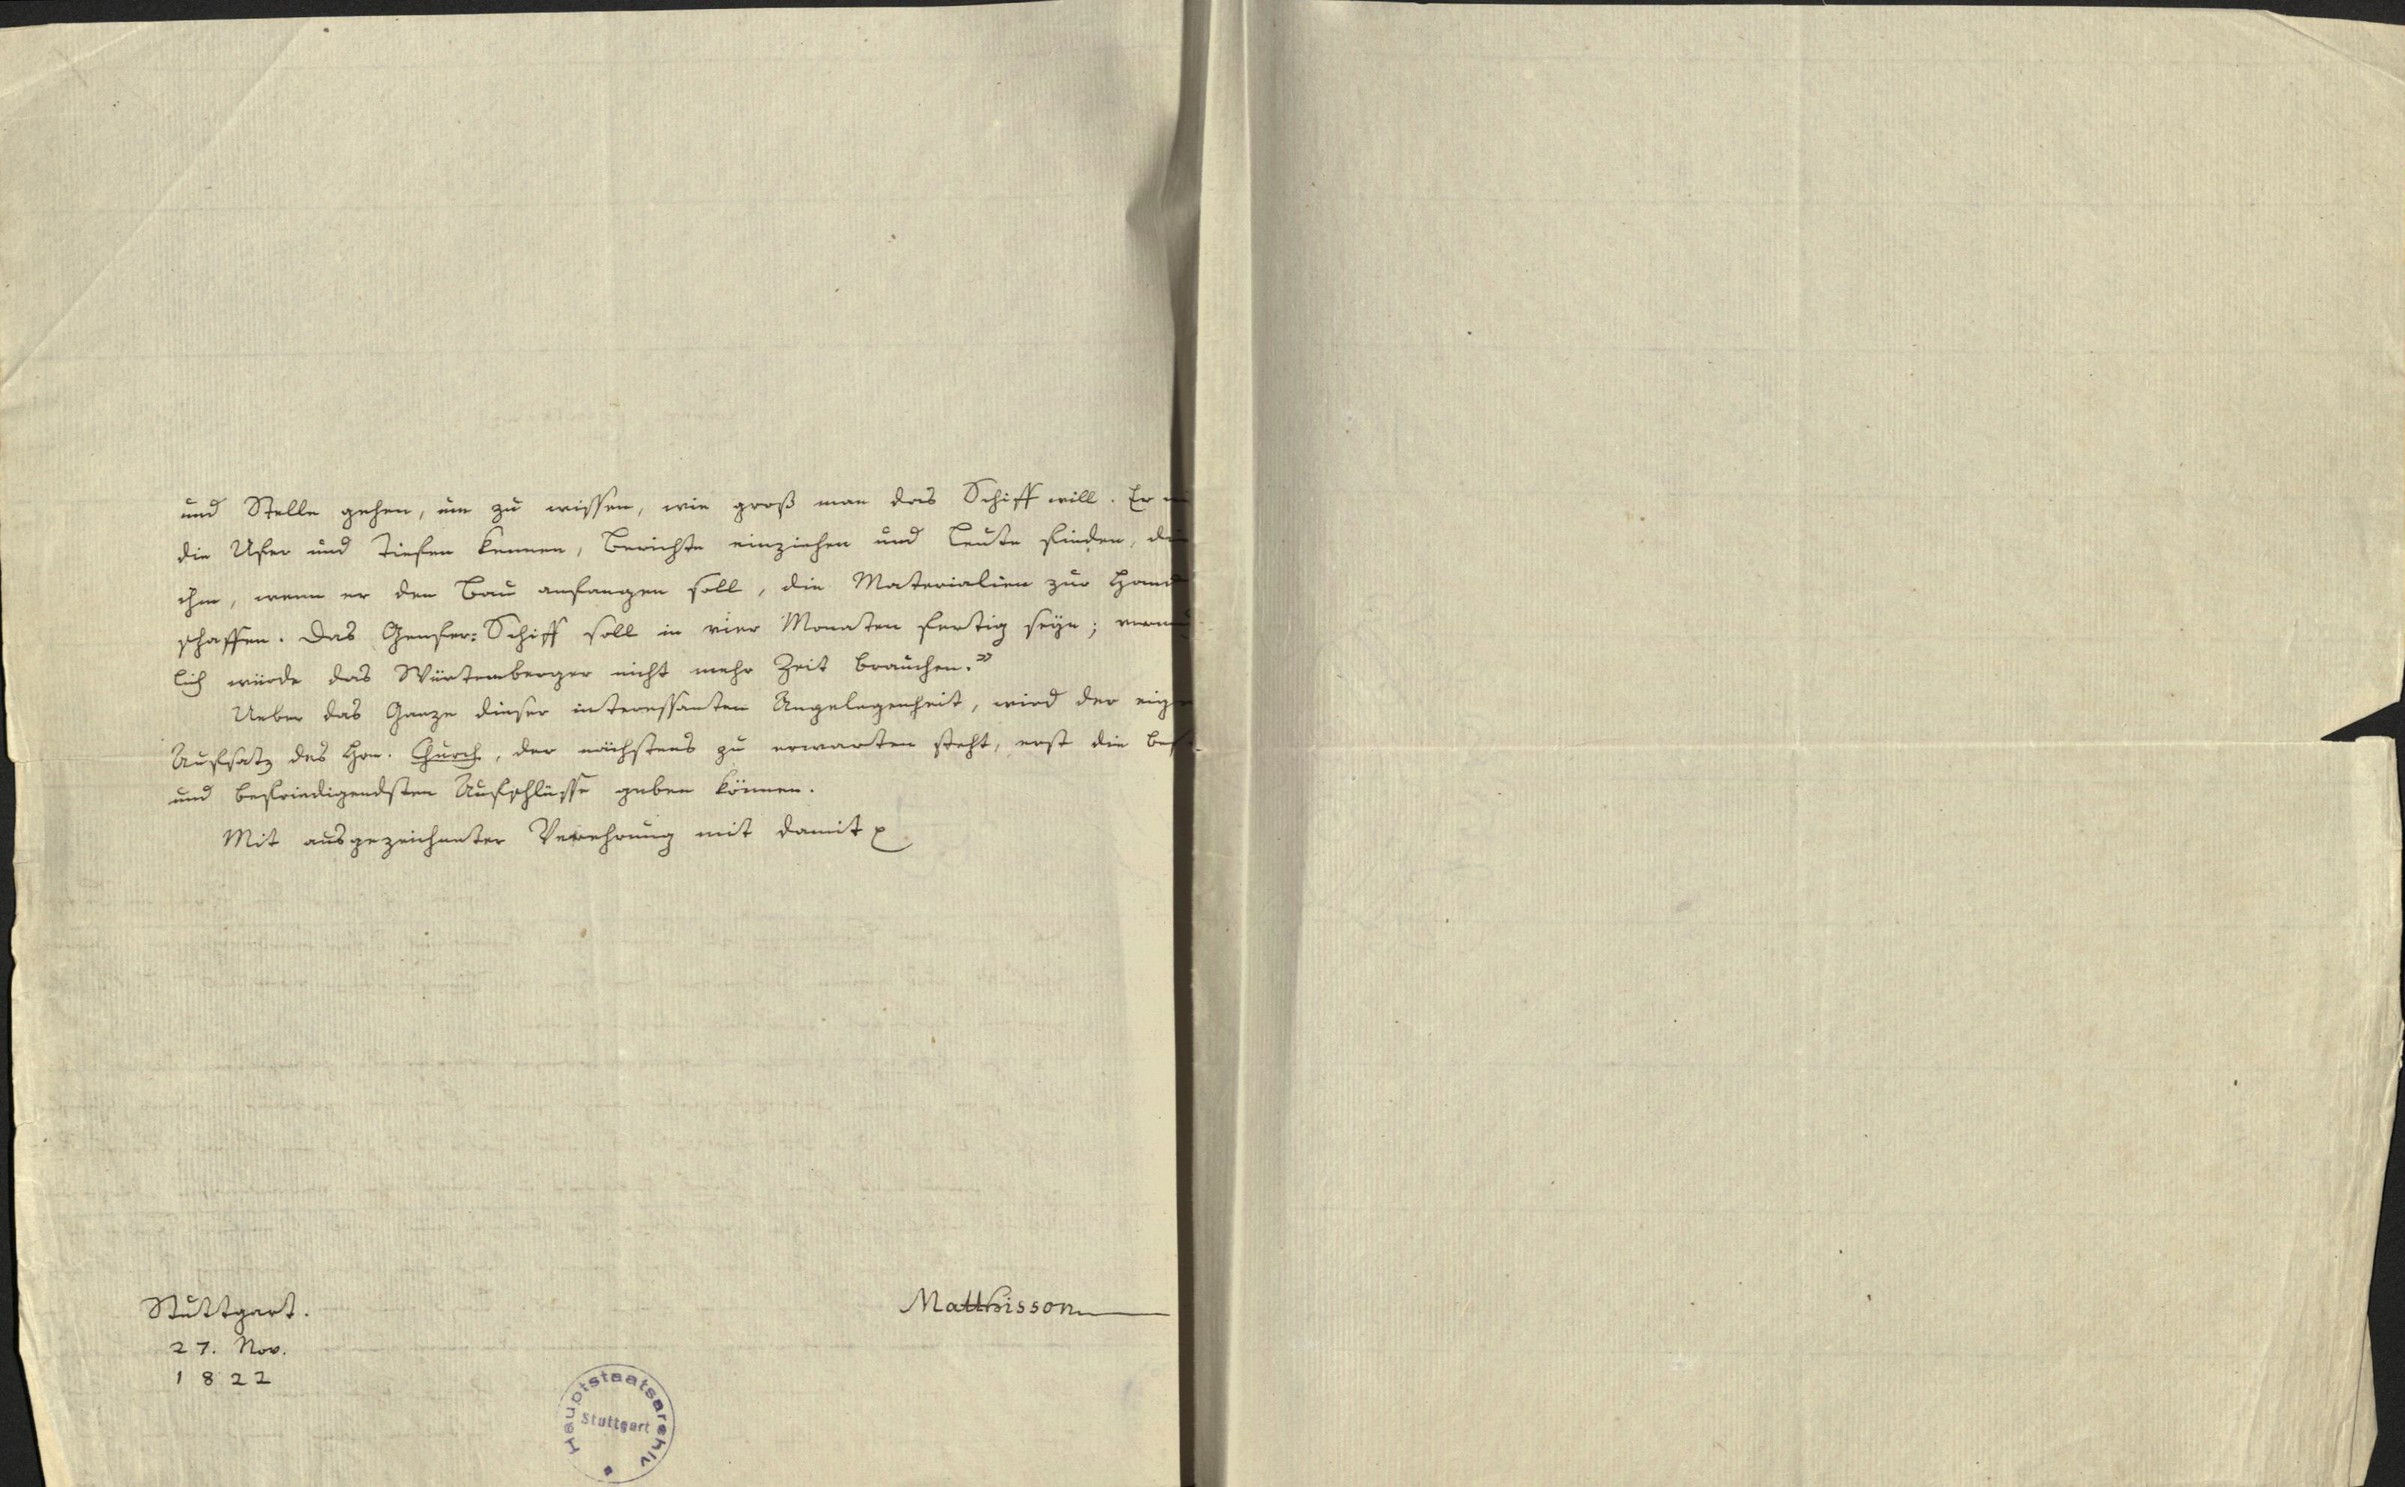 und Stelle gehen, um zu wissen, wie groß man das Schiff will. Er
die Ufer und Tiefen kennen, Berichte einziehen und Leute finden, die
ihm, wenn er den Bau anfangen soll, die Materialien zur Hand
schaffen. Das Genfer-Schiff soll in vier Monaten fertig seyn;
lich würde das Würtemberger nicht mehr Zeit brauchen.»
Ueber das Ganze dieser interessanten Angelegenheit, wird der
Aufsatz des Hrn. Church, der nächstens zu erwarten steht, erst die
und befriedigendsten Aufschlüsse geben können.
Mit ausgezeichneter Verehrung mit damit
Stuttgart.
27. Nov.
1822
Matthisson
Hauptstaatsarchiv
Stuttgart